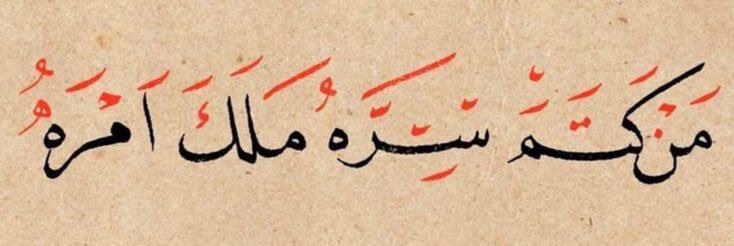 مَنْ كَتَمَ سِرَّهُ مَلَكَ اَمْرَهُ